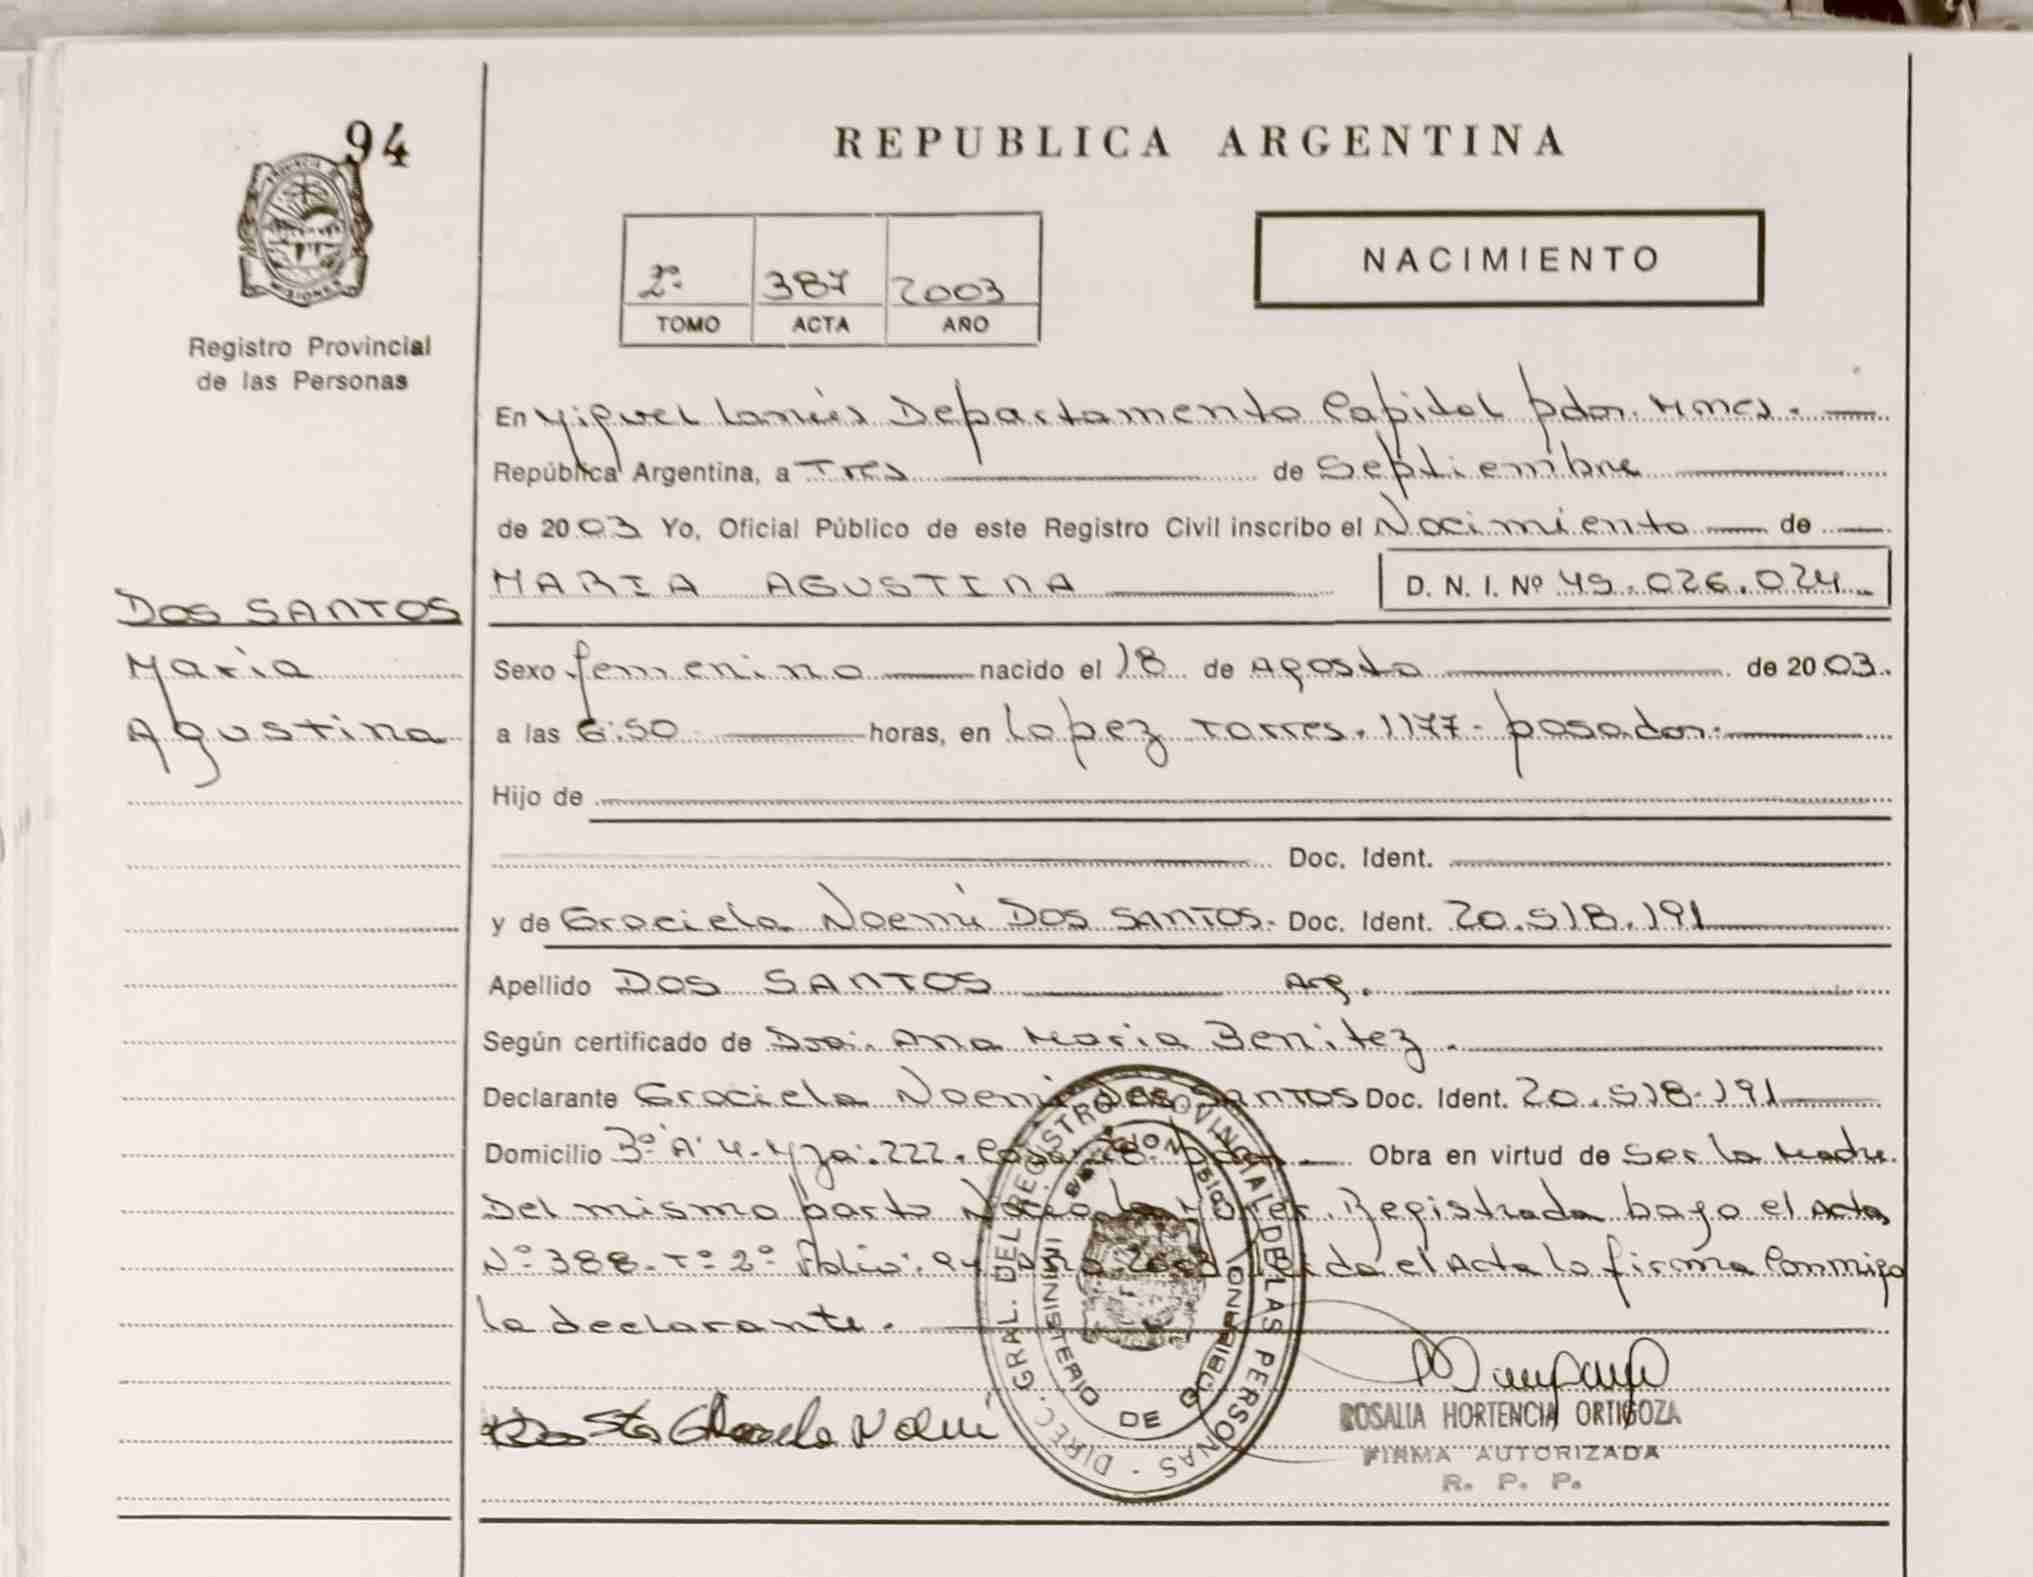 94
PROVINCIA
MISIONES
Registro Provincial
de las Personas
REPUBLICA ARGENTINA
2º 387 2003
TOMO ACTA AÑO
NACIMIENTO
En Miguel Lanús Departamento Capital pdas. Mnes.
República Argentina, a Tres de Septiembre
de 2003 Yo, Oficial Público de este Registro Civil inscribo el Nacimiento de
MARIA AGUSTINA D. N. I. Nº 45.026.024
DOS SANTOS
Maria
Agustina
Sexo femenino nacido el 18 de Agosto de 2003.
a las 6:50 horas, en Lopez Torres. 1177- posadas.
Hijo de
Doc. Ident.
y de Graciela Noemí DOS SANTOS. Doc. Ident. 20.518.191
Apellido DOS SANTOS Arg.
Según certificado de Dra. Ana Maria Benitez.
Declarante Graciela Noemi Dos SANTOS Doc. Ident. 20.518.191
Domicilio 3º "A" 4. Mza. 222. Obra en virtud de Ser la Madre.
Del mismo parto Nació la Registrada bajo el Acta
Nº 388- Tº 2º folio: 94 Año 2003 Leida el Acta la firma Conmigo
la declarante.
DIREC. GRAL. DEL REGISTRO PROVINCIAL DE LAS PERSONAS
MINISTERIO DE GOBIERNO
ROSALIA HORTENCIA ORTIGOZA
FIRMA AUTORIZADA
R. P. P.